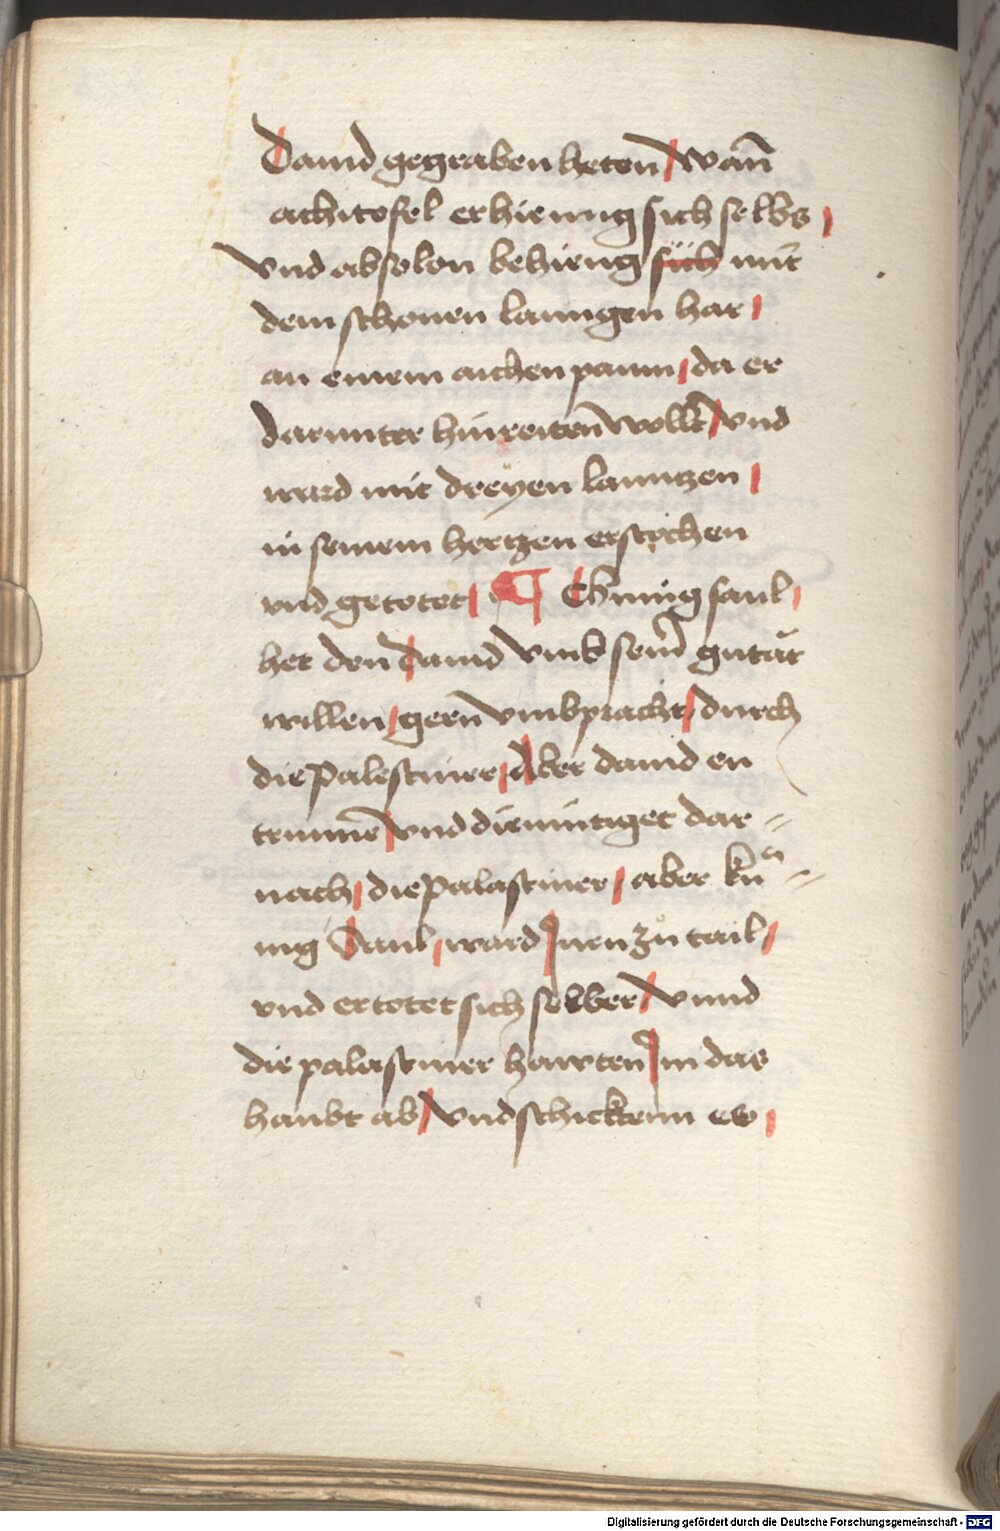 Dauid gegraben heten / wan̄
achitofel erhienng sich selbs /
vnd absolon behieng sich mit
dem schonen lanngen har /
an einem aichen paum / da er
darunter hinreiten̄ wollt̄ / vnd
ward mit dreÿen lanntzen /
in seinem hertzen erstochen
vnd getotet / ¶ Chünig saul /
het den dauid vmb sein̄ gutät
willen / gern̄ vmbpracht / durch
die palestiner / Aber dauid en
trunne͂ / vnd diemütiget dar =
nach / die palastiner / aber kü =
nig Saul / ward Jnen zů tail /
vnd ertotet sich selber̄ / vnnd
die palastiner hawten Jm das
haubt ab / vnd schicktenn es /
Digitalisierung gefördert durch die Deutsche Forschungsgemeinschaft - DFG